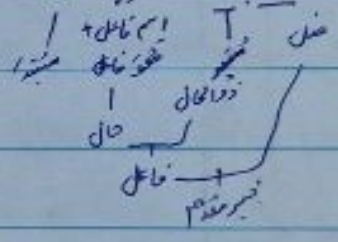 مبتدا اسم فاعل + فعل
ھو فاعل
ذوالحال
حال
فاعل
خبر مقدم